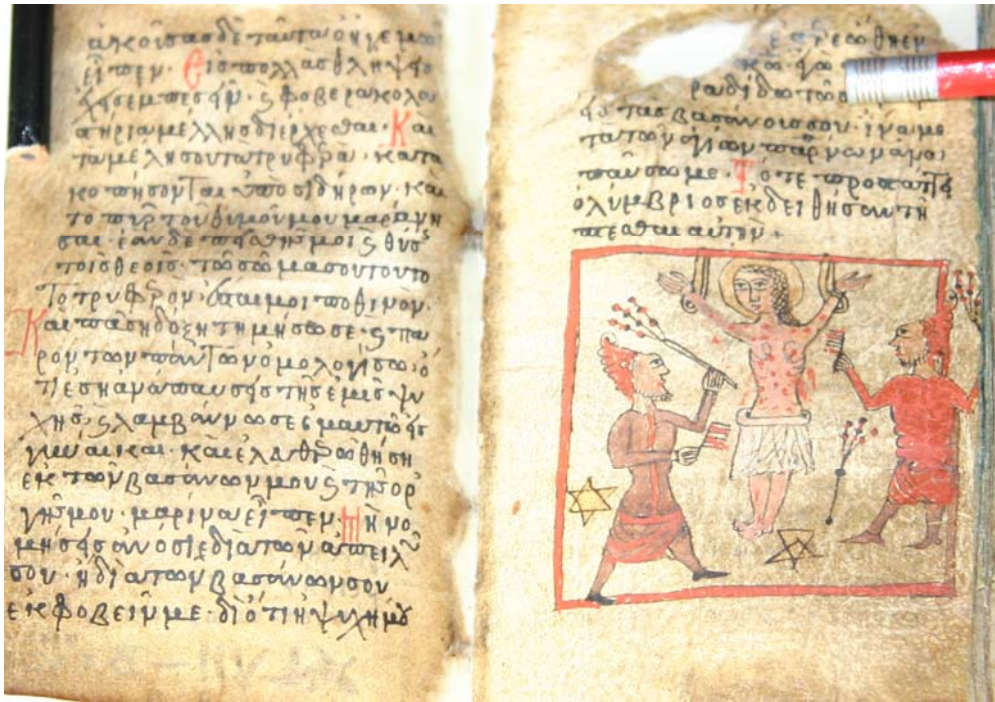 ἀκούσας δὲ ταῦτα ὁ ἡγεμὼν
εἶπεν· Εἰς πολλὰς θλήψεις
ἔχης ἐμπεσῆν· ϗ φοβερὰ κολα
στήρια μέλλης διέρχεσθαι· Και
τα μέλη σου τὰ τρυφερὰ· κατα
κοπήσονται ὑπὸ σιδήρων· Καὶ
το πῦρ τοῦ θυμοῦ μου μαράνη
σαι· ἐὰν δὲ πεισθῆς μοι ϗ θυσ
τοῖς θεοῖς· τῶ σῶμα σου τουτο
Το τρυφερον· ἔσται μοι ποθινον·
Και πάση δόξη τημήσω σε· ϗ πα
ρον τῶν πάντων ὁμολογίσω· ὁ
τι ἐση ἀνάπαυσης της ἐμῆς ψυ
χῆς· ϗ λαμβάνω σε ἐμαυτῶ εἰς
γυναικαι· Και ἐλευθερωθήση
ἐκ τῶν βασάνων μου ϗ της ὀρ
γῆς μου· μαρίνα εἶπεν· Μὴ νο
μησης ἀνόσιε διὰ τῶν ἀπειλῶν
σου· ἠ διὰ τῶν βασάνων σου
ἐκφοβεῖν με· διότι ἡ ψυχή μου
ραδίδωτως
εἰς τας βασάνοις σου· ἵνα με
τα τῶν ἁγίων παρνων ἀνα
παύσωμε· Τότε προσ
ὀλύμβριος ἐκδειθησαν τη